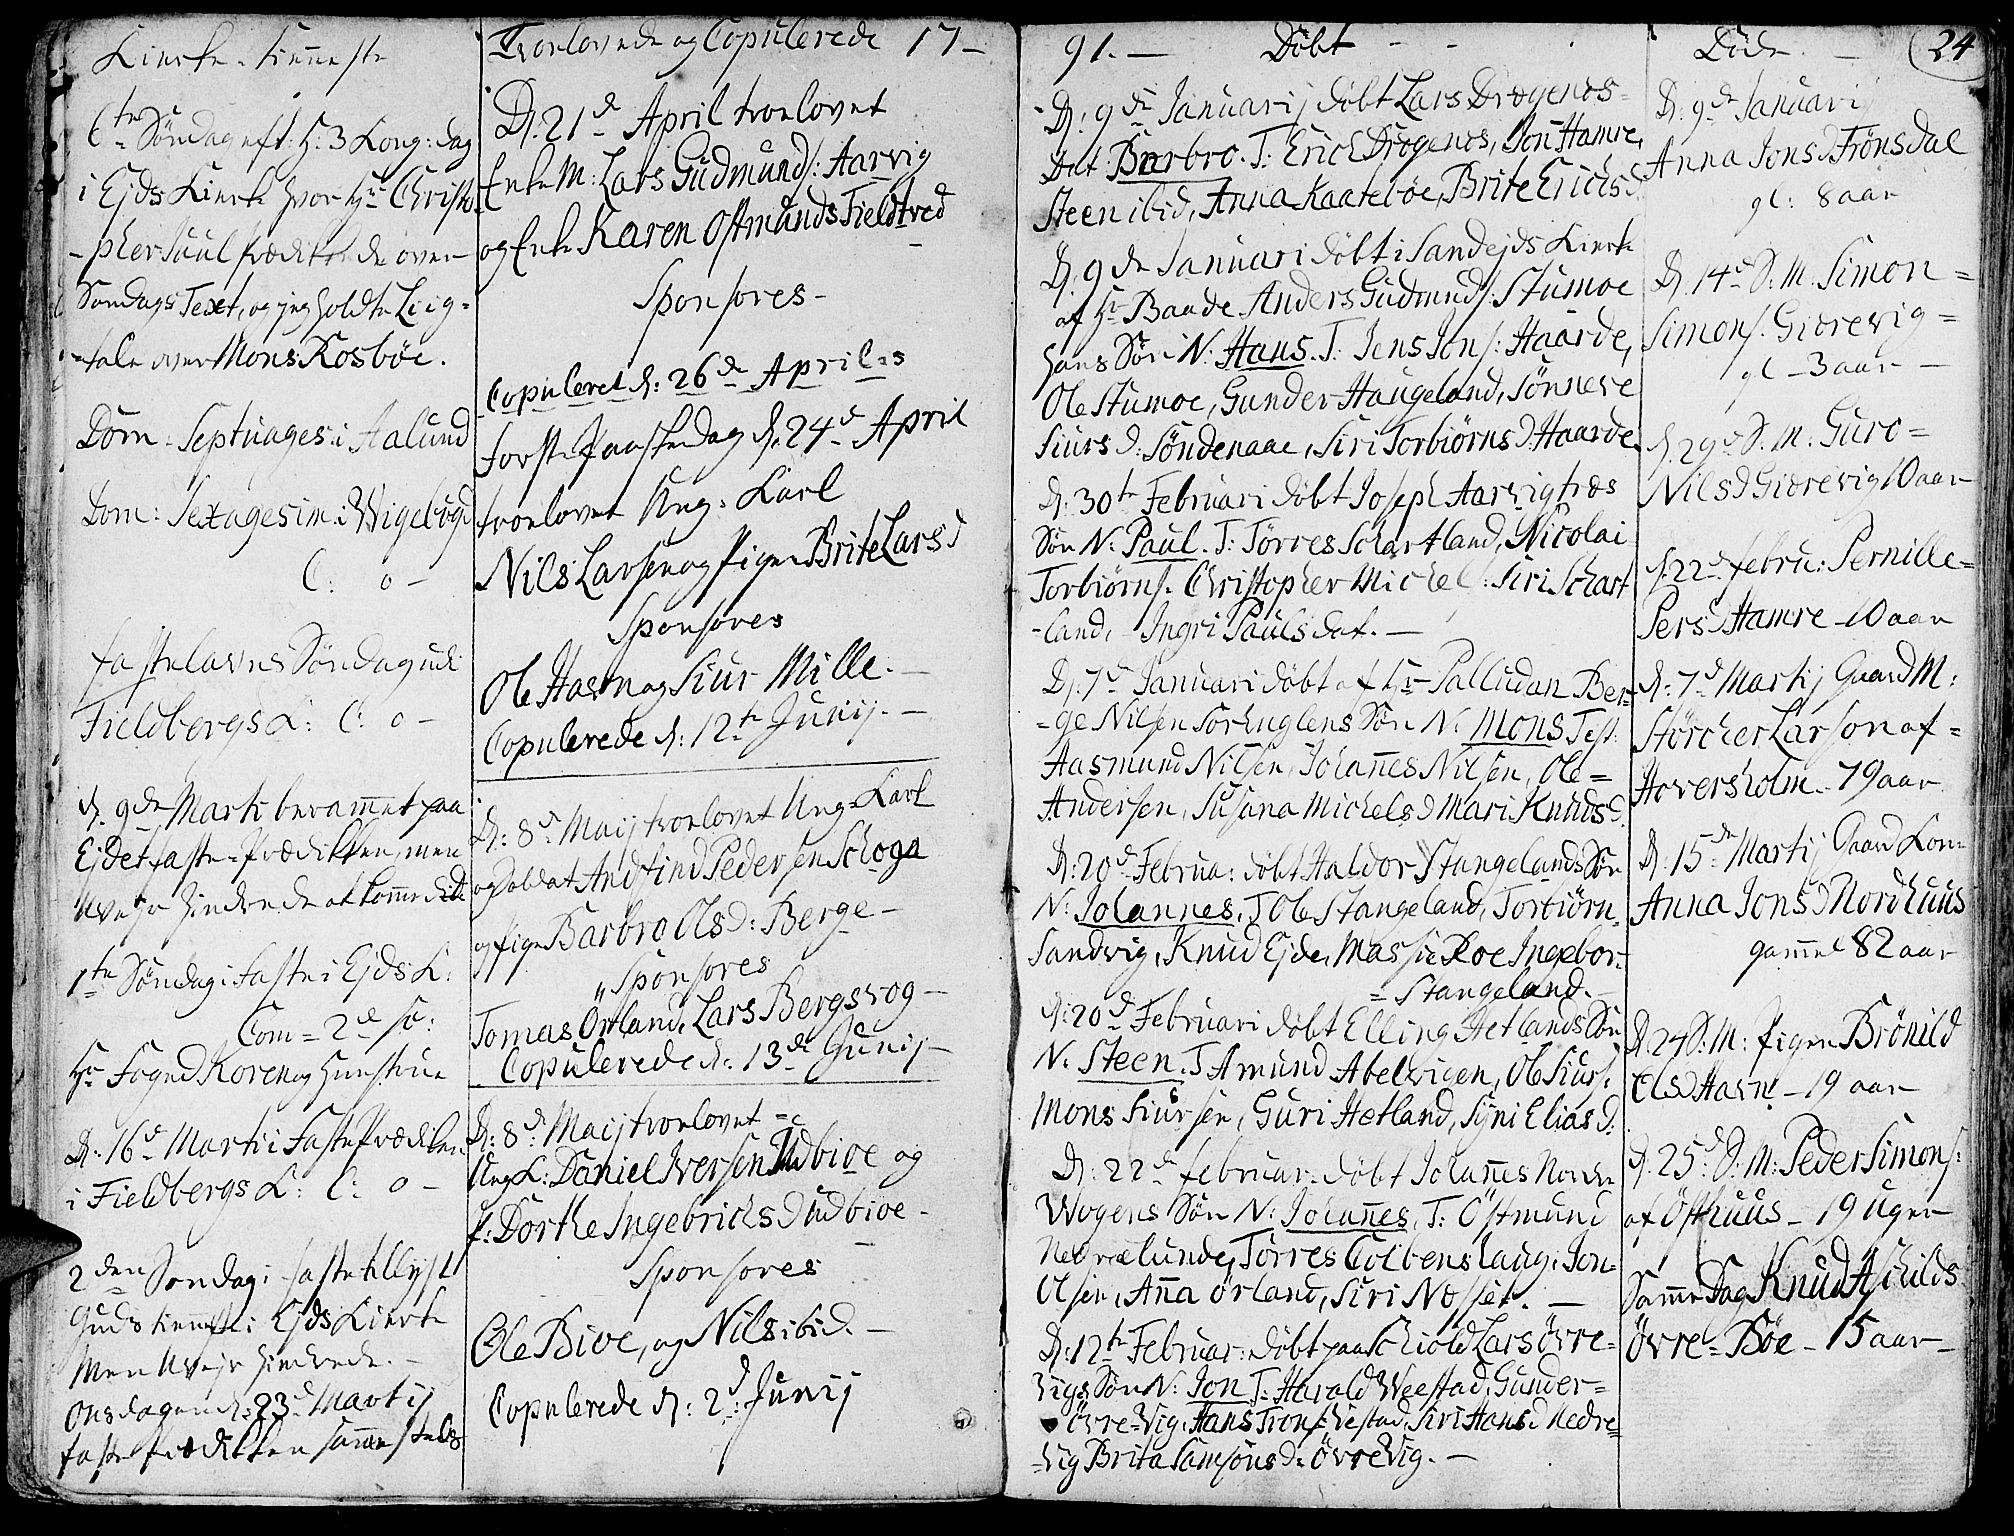 Kirke-tieneste
6te Søndag eft: H: 3 Kong: dag
i Ejds Kirke hvor Hr. Christo-
-pher Juul prædikede over
Søndags Text, og jeg holdte Liig-
-tale over Mons Rosbøe.
Dom: Septuages: i Aalund
Dom: Sexagesim: i Wigebøgd
C: o -
Fastelavns Søndag udi
Fieldbergs K: C: o -
d. 9de Marti beramet paa
Ejdet faste-Prædikken, men
Uvejr hindrede at komme did
1te Søndag i Faste i Ejds K:
Com = 2de so:
Hr Foged Koren og Hunstrue
D: 16de Marti i Faste Prædiken
i Fieldbergs K: C: o -
2den Søndag i faste tillyst
Guds tieneste i Ejds Kierke
Men Uvejr hindrede. -
Onsdagen d: 23de Martij
faste prædikken samesteds
Trovlovede og Copulerede 17-
D. 21de April trovlovet
Enke M: Lars Gudmunds: Aarvig
og Enke Karen Ostmunds Fieldtved
Sponsores -
Copuleret d: 26de Aprilis
første Paaskedag d. 24de April
trovlovet Ung: Karl
Nils Larsen og Pigen Brite Larsd
Sponsores
Ole Havn og Siur Mille. -
Copulerede d: 12te Junij. -
D: 8de Maij trovlovet Ung Karl
og Soldat Andfind Pedersen Schoga
og pige Barbro Olsd: Berge -
Sponsores
Tomas Ørland, Lars Bergsvog -
Copulerede d: 13de Junij -
D: 8de Maij trovlovet =
Ung K: Daniel Iversen Udbioe og
p: Dorthe Ingebrichsd Udbioe -
Sponsores
Ole Bioe, og Nils ibid. -
Copulerede d: 2d: Junij
91. - Døbt - -
D: 9de Januarij døbt Lars Drogenes-
Dat: Barbro. T: Erich Drogenes, Jon Hamre,
Steen ibid, Anna Kaatebøe, Brite Erichsd
D: 9de Januari døbt i Sandejds Kierke
af Hr Baade Anders Gudmunds: Stumoe
hans Søn N: Hans. T: Jens Jons: Haarde,
Ole Stumoe, Gunder Haugeland, Sønneve
Siursd: Søndenaae, Siri Torbiørnsd: Haarde
D: 30te Februari døbt Joseph Aarvigtræs
Søn N: Paul. T: Tørres Schartland, Nicolai
Torbiørns. Christopher Michel: Siri Schart
-land, Ingri Pauls dat. -
D: 7de Januari døbt af Hr Palludan Ber-
-ge Nilsen Sørhuglens Søn N: Mons Test:
Aasmund Nilsen, Johannes Nilsen, Ole =
Andersen, Susana Michelsd Mari Knudsd.
D: 20de Februa: døbt Haldor Stangelands Søn
N: Johannes. T Ole Stangeland, Torbiørn
Sandvig, Knud Ejde, Massie Roe Ingebor-
= Stangeland. -
D: 20de Februari døbt Elling Hetlands Søn
N: Steen. T Amund Abelvigen, Ole Siurs:
Mons Siursen, Guri Hetland, Syni Eliasd:
D: 22de februar: døbt Johannes Nordre
Wogens Søn N: Johannes, T: Ostmund
Nedrælunde, Tørres Colbenslaug, Jon
Olsen, Anna Ørland, Siri Nesset. -
D: 12te Februar: døbt paa Schiold Lars Øvre-
vigs Søn N: Jon T: Harald Weestad, Gunder =
Øvre-vig, Hans Trons: Vestad, Siri Hansd Nedre
-vig Brita Samsonsd: Øvrevig. -
Døde - 24
D: 9de Januarij
Anna Jonsd Frønsdal
gl: 8 aar
D. 14de D: M. Simon =
Simons. Giærevig =
gl - 3 aar -
d. 29de D: M. Guro =
Nilsd Giærevig 10 aar
d. 22de febru: Pernille =
Persd Hamre - 10 aar
d: 7de Martij Gaard M:
Størcker Larson af =
Hoversholm - 79 aar
D. 15de Martij Gaard Kon-
Anna Jonsd Nordhuus
gammel 82 aar
D. 24 D: M: Pigen Brønild
Elsd Havn - 19 aar
d. 25de D: M: Peder Simons:
af Østhuus - 19 Uger
Samme Dag Knud Aschilds
Øvre = Bøe - 15 aar -